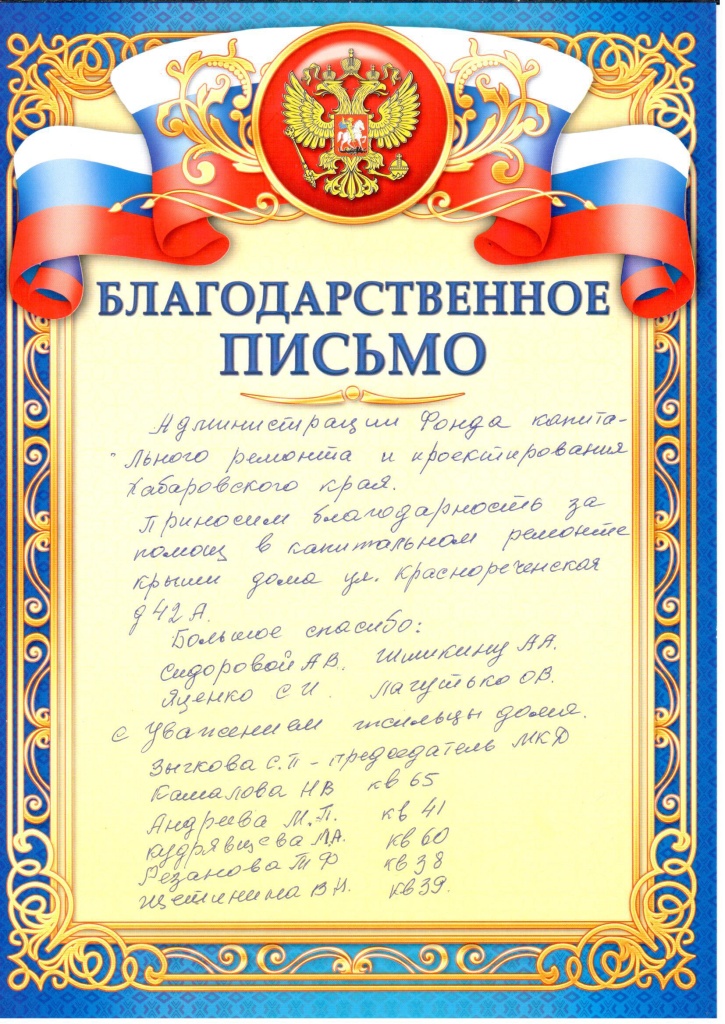 БЛАГОДАРСТВЕННОЕ
ПИСЬМО
Администрации Фонда капита-
льного ремонта и проектирования
Хабаровского края.
Приносим благодарность за
помощ в капитальном ремонте
крыши дома ул. Краснореченская
д 42 А.
Большое спасибо:
Сидоровой АВ. Шмикину АА.
Яценко С И. Лагутько ОВ.
С Уважением жильцы дома.
Зычкова С.П - председатель МКД
Камалова НВ кв 65
Андреева М.П. кв 41
Кудрявцева МА. кв 60
Резанова Т Ф кв 38
Щетинина В И. кв 39.